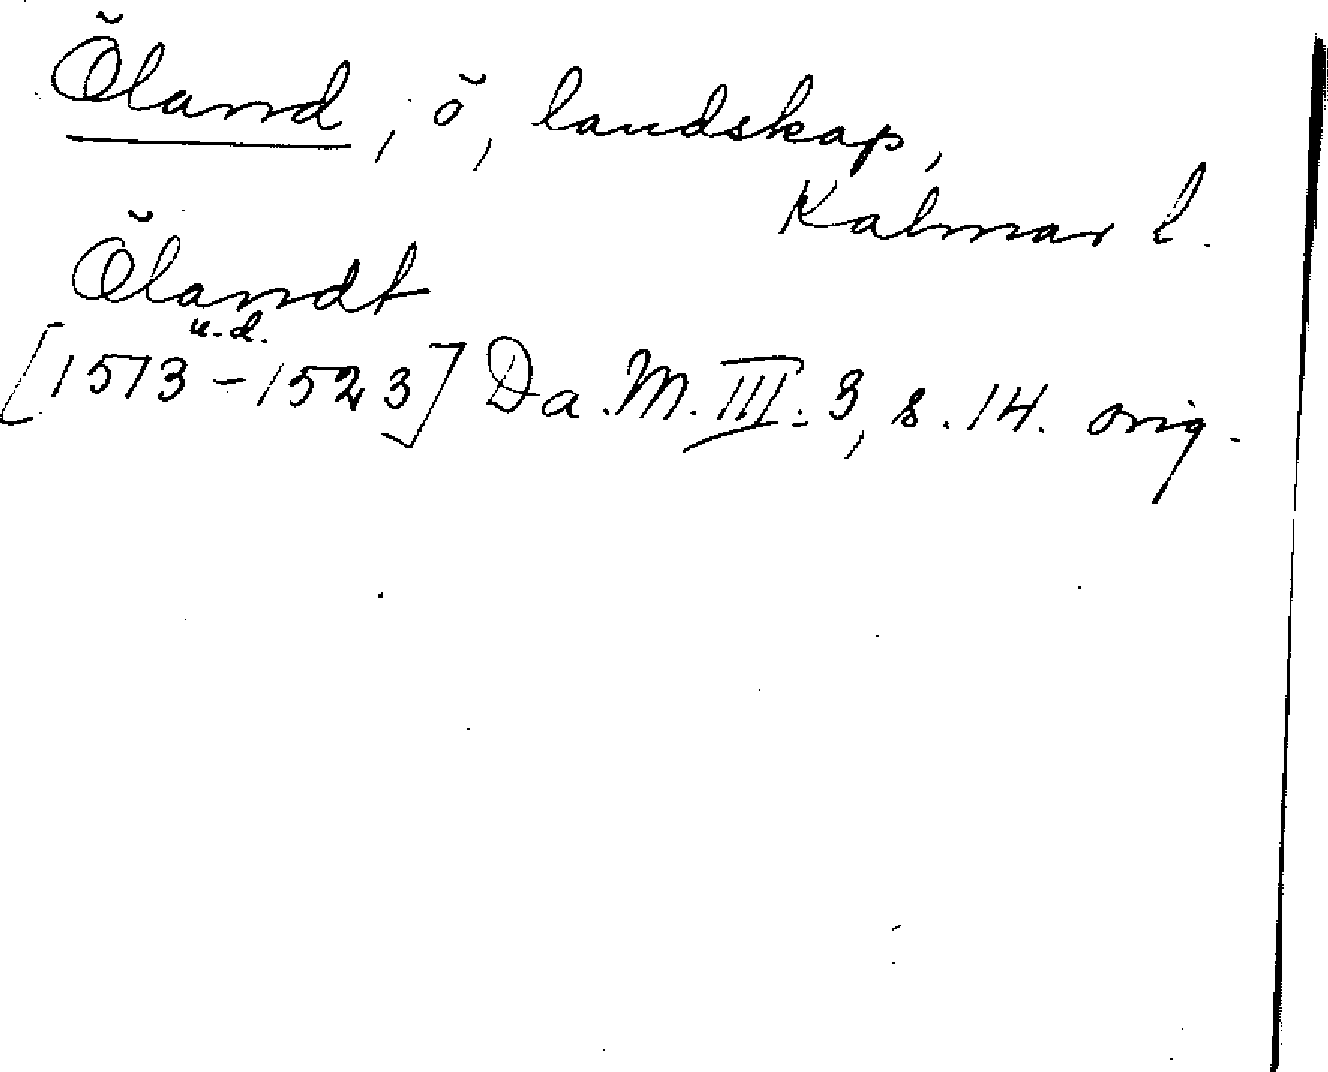 Öland, ö, landskap,
Kalmar l.
Ölandt
u.d.
[1513-1523] Da. M. III. 3, s. 14. orig.